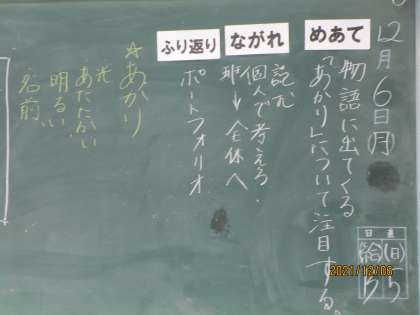 12月6日(月)
日直
給
(日)
めあて
物語に出てくる
「あかり」について注目する。
ながれ
読む
個人で考える
班→全体へ
ふり返り
ポートフォリオ
☆あかり
光
あたたかい
明るい
名前
2021/12/06